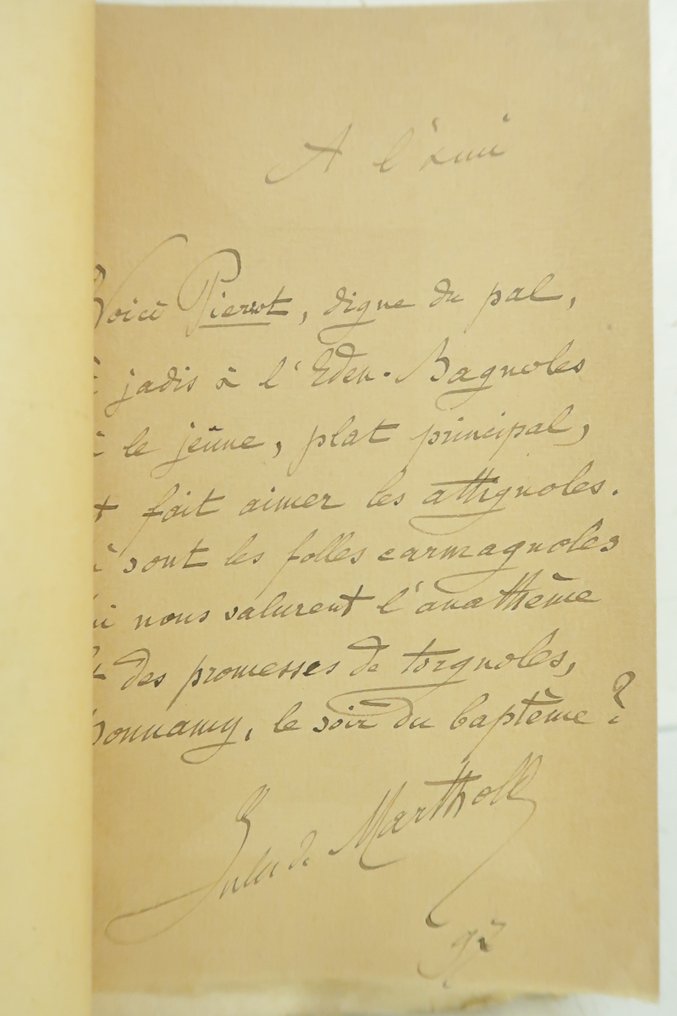 A l'ami
Voici Pierrot, digne du pal,
jadis à l'Eden-Bagnoles
le jeûne, plat principal,
fait aimer les attignoles.
sont les folles carmagnoles
nous valurent l'anathème
des promesses de torgnoles,
Bonnamy, le soir du baptême ?
Jules de Marthold
92